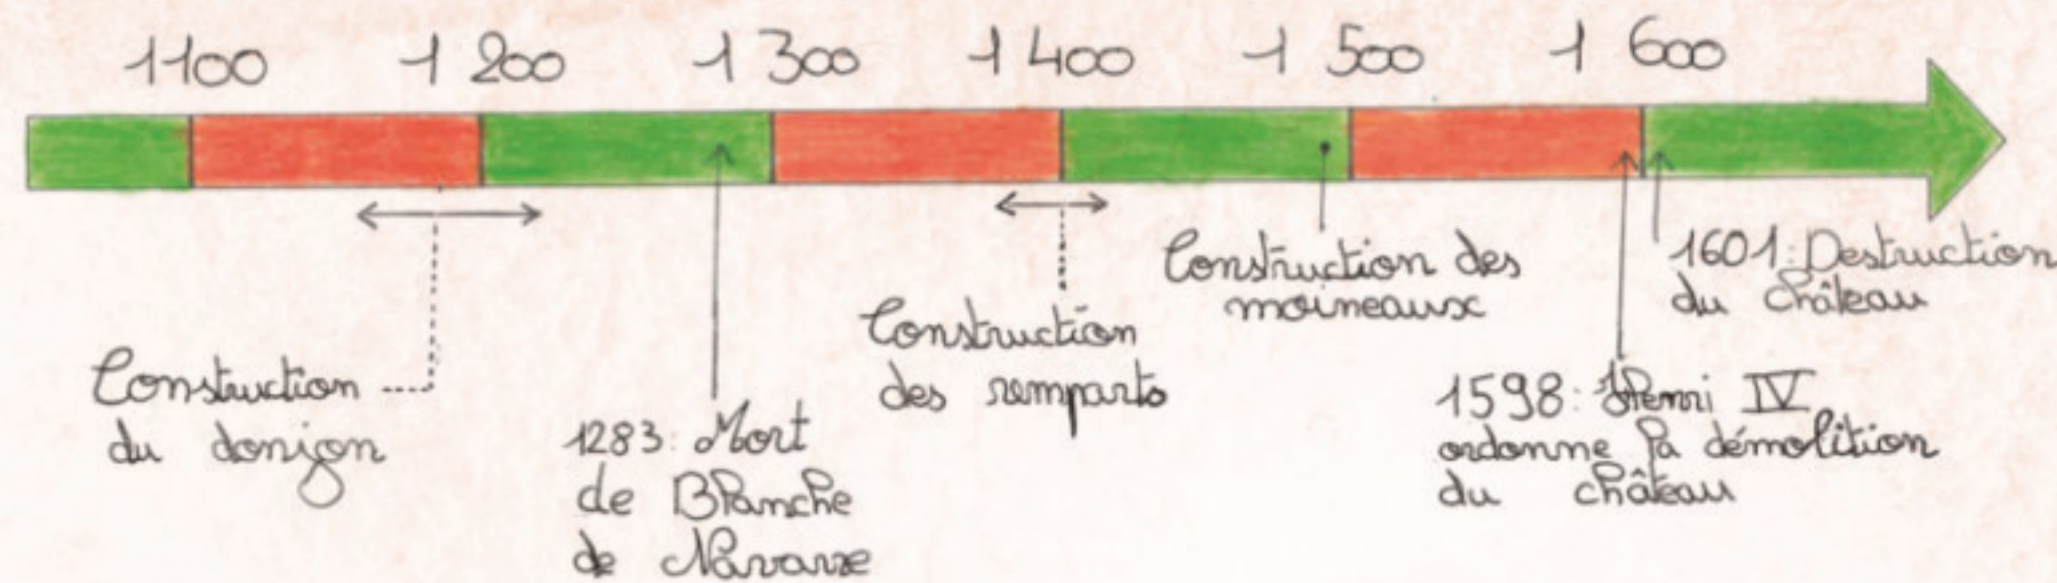 1100 1 200 1 300 1 400 1 500 1 600
Construction
du donjon
1283: Mort
de Blanche
de Navarre
Construction
des remparts
Construction des
moineaux
1598: Henri IV
ordonne la démolition
du château
1601: Destruction
du château